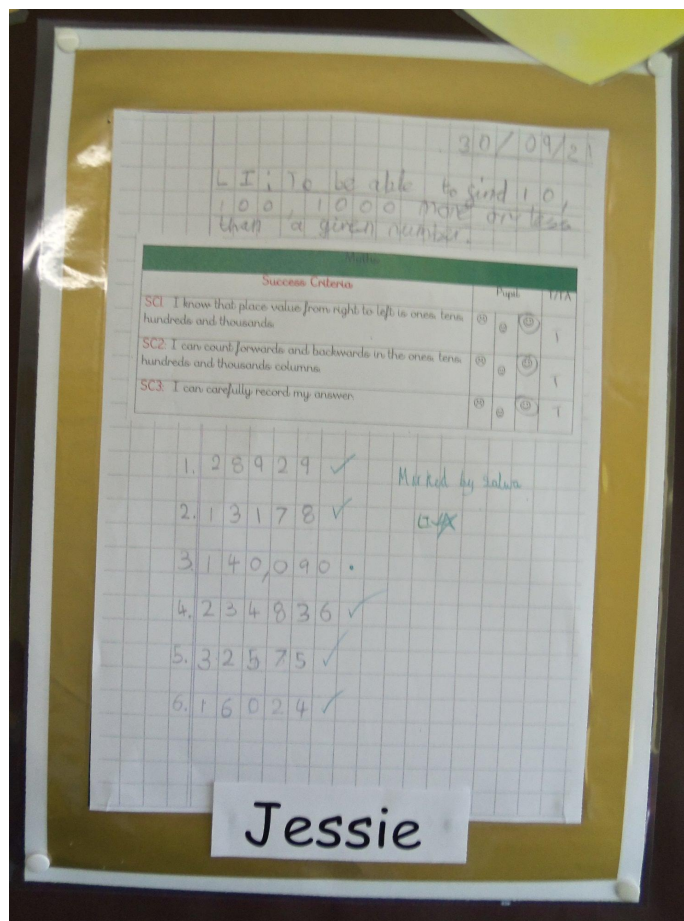 30/09/21
LI: To be able to find 10,
100, 1000 more or less
than a given number.
Maths
Success Criteria Pupil T/TA
SC1. I know that place value from right to left is ones, tens,
hundreds and thousands. T
SC2. I can count forwards and backwards in the ones, tens,
hundreds and thousands columns. T
SC3. I can carefully record my answer. T
1. 28929 ✓
Marked by Salwa
2. 13178 ✓
3. 140,090 .
4. 234836 ✓
5. 32575 ✓
6. 16024 ✓
Jessie